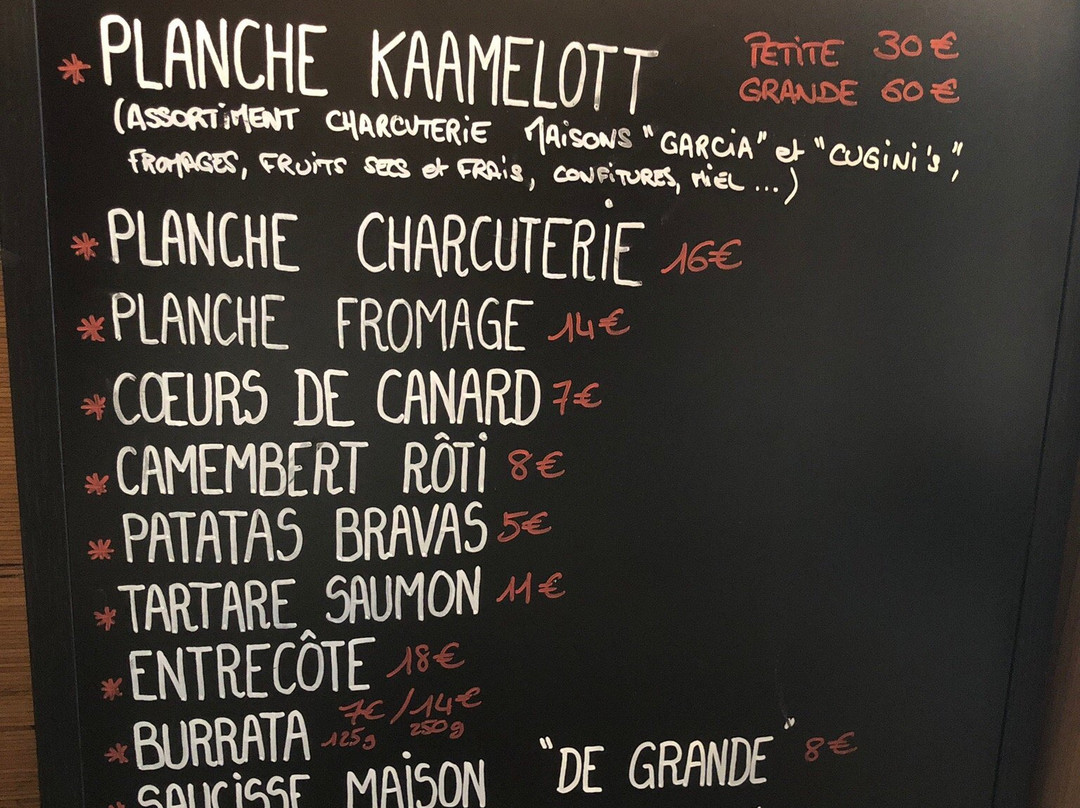 * PLANCHE KAAMELOTT PETITE 30€
GRANDE 60€
(ASSORTIMENT CHARCUTERIE MAISONS "GARCIA" et "CUGINI's",
FROMAGES, FRUITS SECS et FRAIS, CONFITURES, MIEL...)
* PLANCHE CHARCUTERIE 16€
* PLANCHE FROMAGE 14€
* CŒURS DE CANARD 7€
* CAMEMBERT RÔTI 8€
* PATATAS BRAVAS 5€
* TARTARE SAUMON 11€
* ENTRECÔTE 18€
* BURRATA 7€/14€
125g 250g
* SAUCISSE MAISON "DE GRANDE" 8€